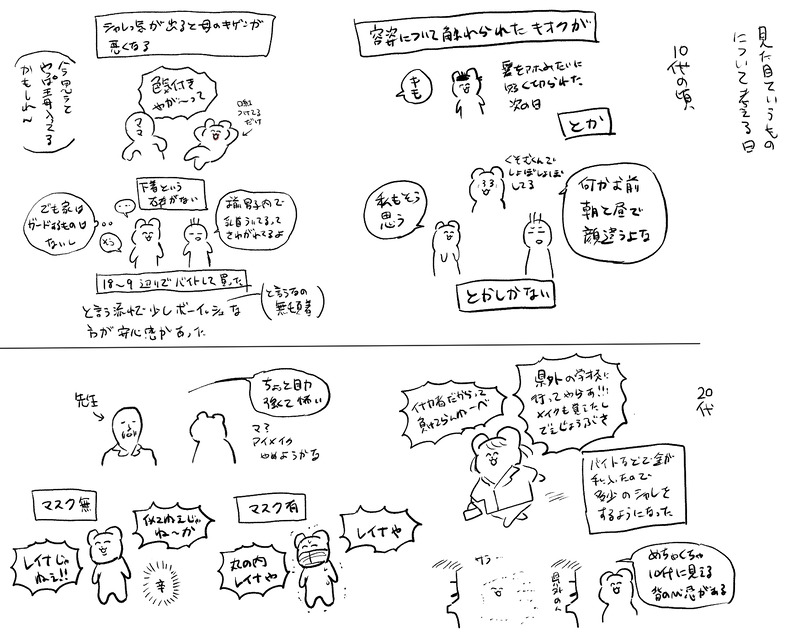 見た目ていうもの
について考える日
10代の頃
容姿について触れられたキオクが
キモ
髪をアホみたいに
短く切られた
次の日
とか
くもぞくんで
しょぼしょぼ
してる
何かお前
朝と昼で
顔違うよな
私もそう
思う
とかしかない
シャレっ気が出ると母のキゲンが
悪くなる
色気付き
やが〜って
ママ
つけてる
だけ
今思うと
やっぱ毒入ってる
かもしれん
下着という
存在がない
でも家は
ガードするものは
ないし
男子内で
乳首ういてるって
さわがれてるよ
18〜9辺りでバイトして買った
と言う流れで少しボーイッシュな
方が安心感があった
と言うなの
無頓着
20
代
県外の学校に
行ってやらす!!!
メイクも覚えたし
でぇじょうぶさ
イナカ者だからって
負けてらんねーべ
バイトなどで金が
手に入ったので
多少のシャレを
するようになった
めちゃくちゃ
10代に見える
皆の心意がある
県外のん
サラー
先生
ちょっと目力
強くて怖い
マ?
アイメイク
やめようかな
マスク無
レイナじゃ
ねぇ!!
似てねぇじゃ
ね〜か
辛
マスク有
丸の内
レイナや
レイナや